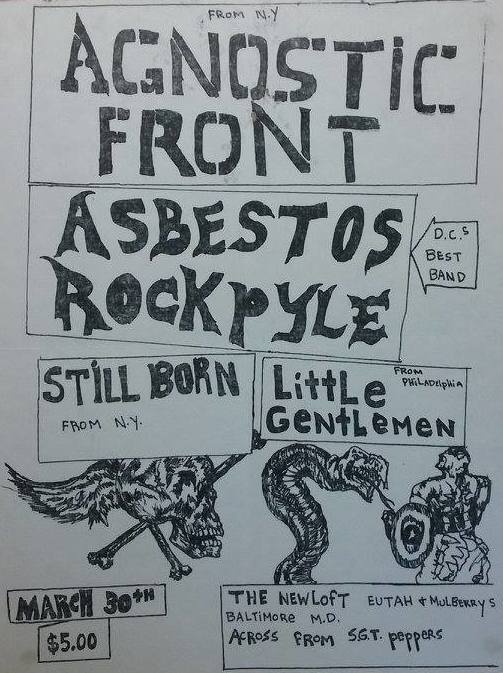 FROM N.Y
AGNOSTiC
FRONT
ASBESTOS
ROCKPYLE
D.C.S
BEST
BAND
STiLL BORN
FROM N.Y.
LittLe
GeNtLeMeN
FROM
PHiLADelphiA
MARCH 30TH
$5.00
THE NEW LOFT EUTAH & MULBERRYS
BALTIMORE M.D.
ACROSS FROM S.G.T. peppers